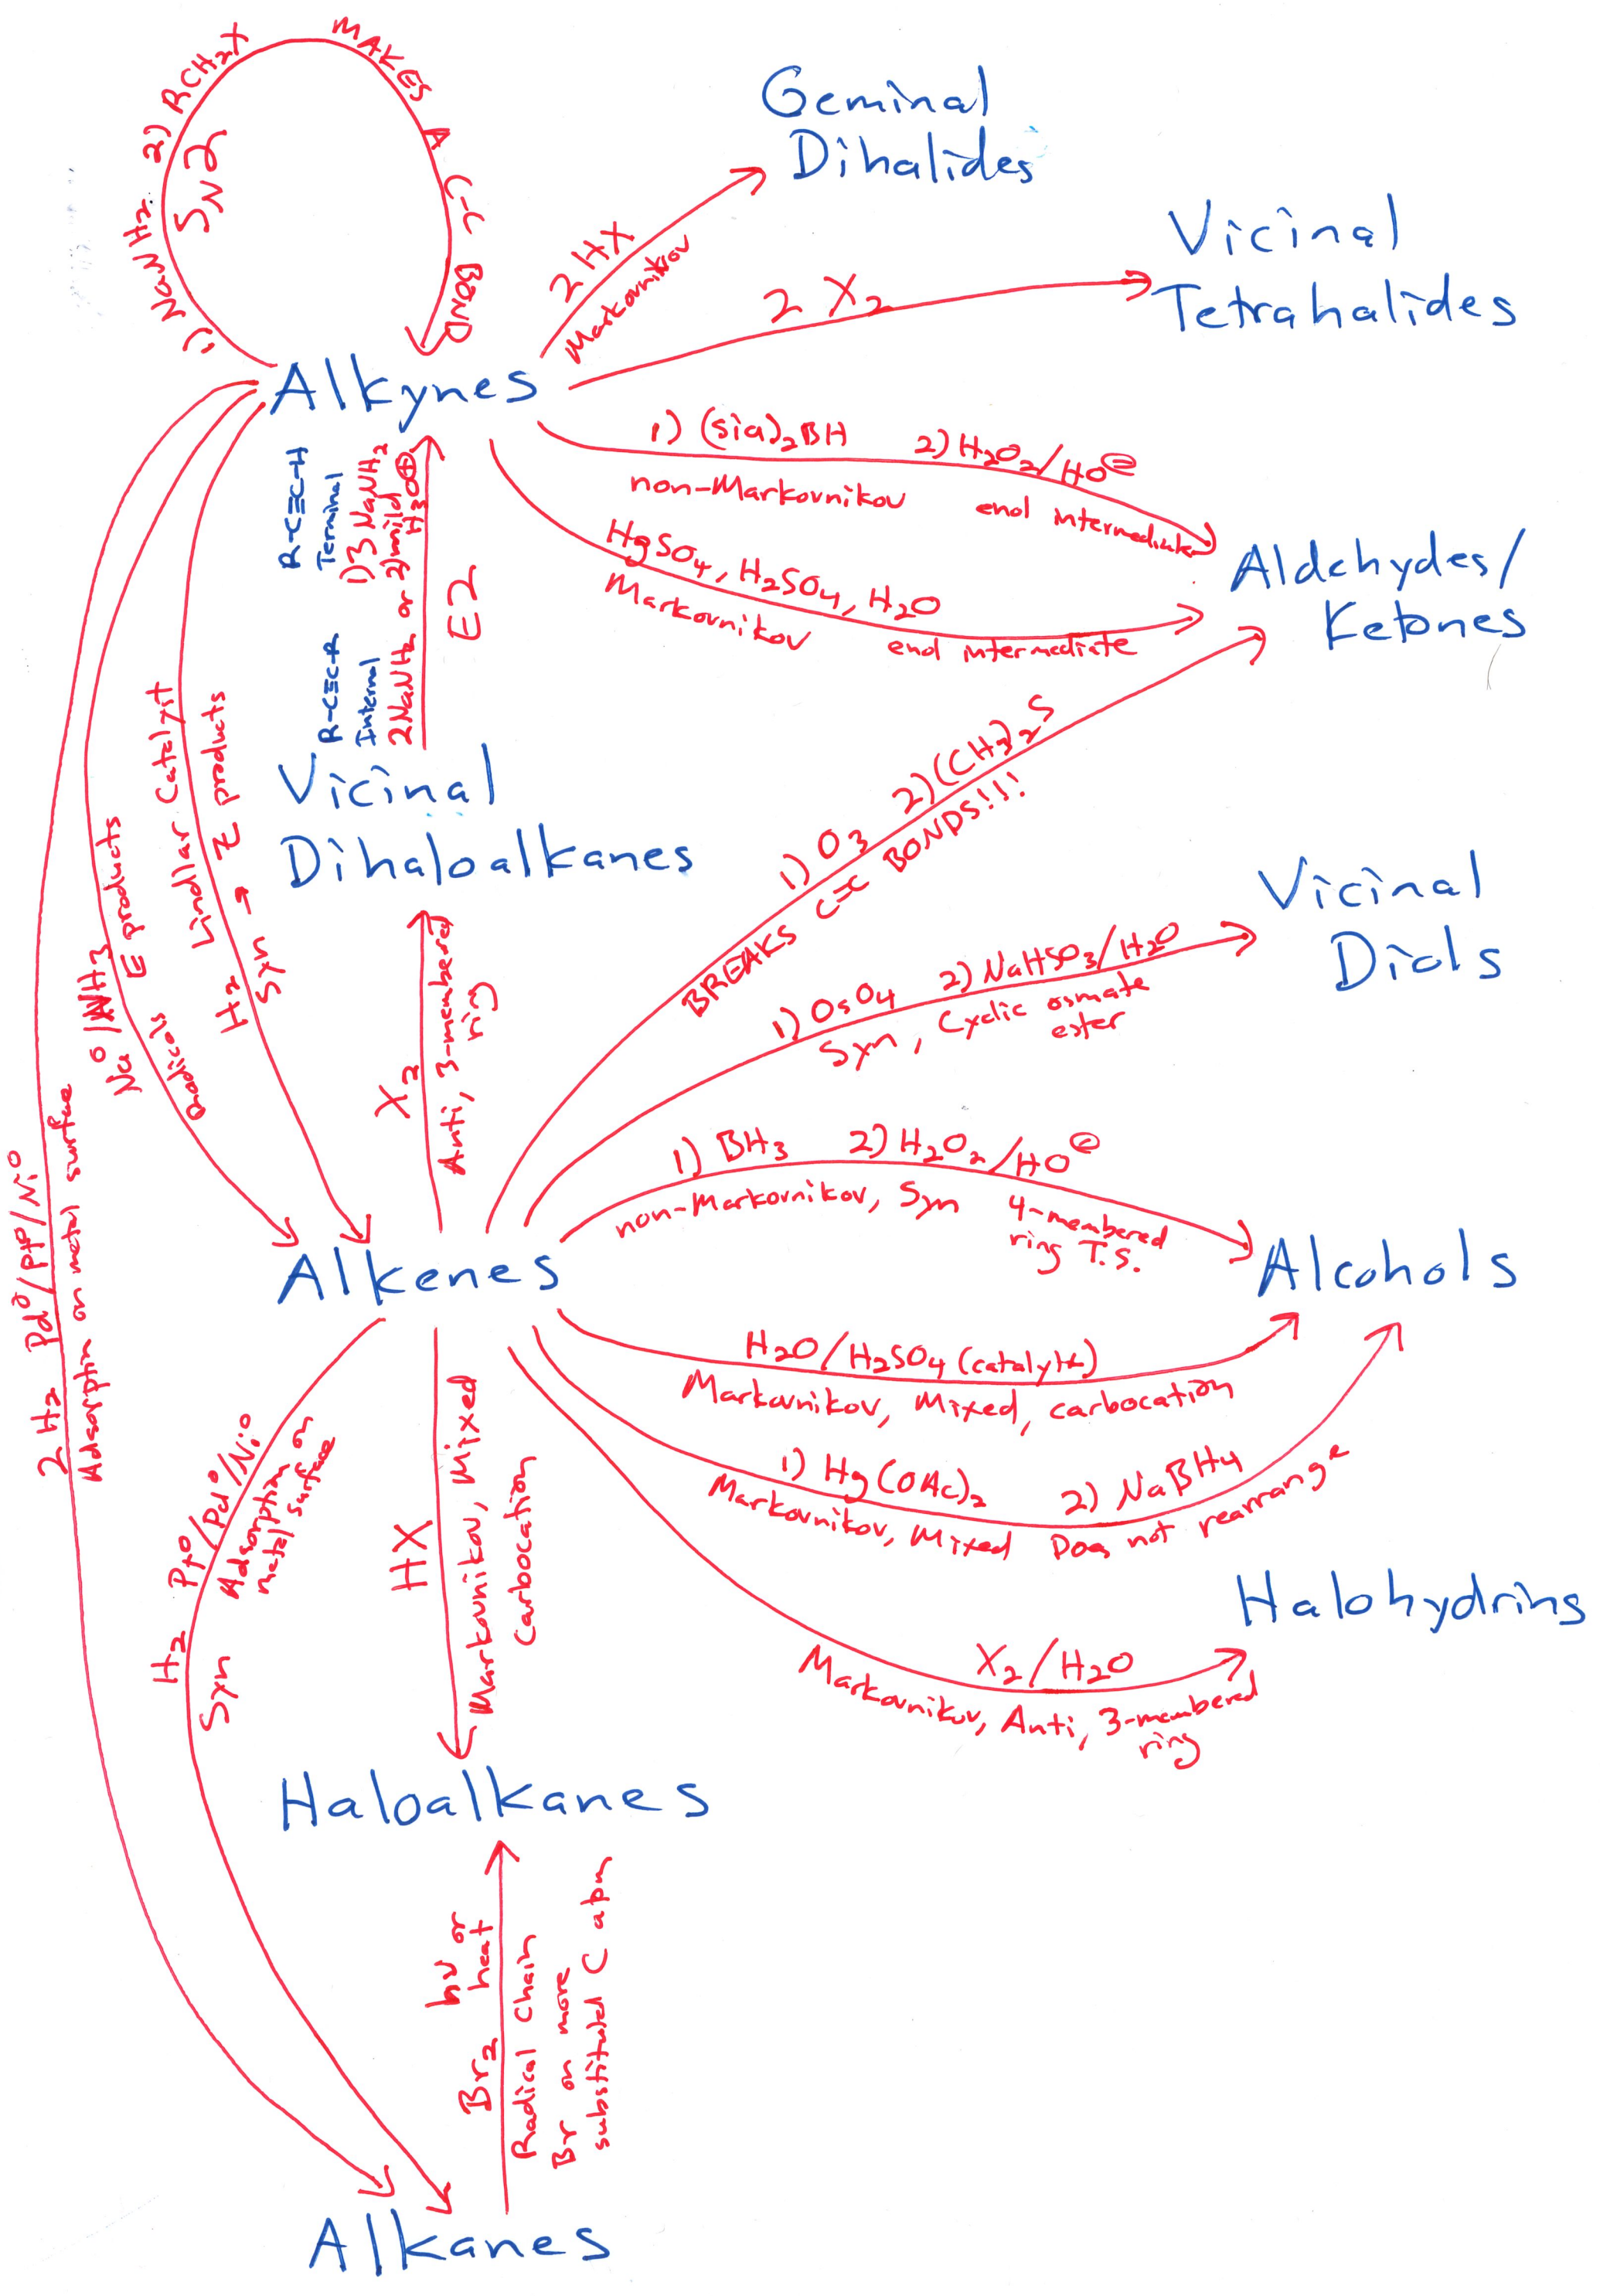 1) NaNH2 2) RCH2X
SN2
MAKES A C-C BOND
Geminal
Dihalides
2 HX
Markovnikov
Vicinal
Tetrahalides
2 X2
Alkynes
1) (sia)2BH 2) H2O2/HO⊖
non-Markovnikov enol intermediate
HgSO4, H2SO4, H2O
Markovnikov enol intermediate
Aldehydes/
Ketones
R-C≡C-H
Terminal
1) 3 NaNH2
2) mild H3O⊕
or
R-C≡C-R
Internal
2NaNH2
E2
Vicinal
Dihaloalkanes
1) O3 2) (CH3)2S
BREAKS C=C BONDS!!!
Vicinal
Diols
1) OsO4 2) NaHSO3/H2O
Syn, Cyclic osmate
ester
X2
Anti, 3-membered
ring
H2 Lindlar Catalyst
Syn → Z products
Na⁰/NH3
E products
Radicals
2 H2 Pd⁰/Pt⁰/Ni⁰
Adsorption on metal surface
1) BH3 2) H2O2/HO⊖
non-Markovnikov, Syn 4-membered
ring T.S.
Alkenes
Alcohols
H2O/H2SO4 (catalytic)
Markovnikov, Mixed, carbocation
1) Hg(OAc)2 2) NaBH4
Markovnikov, Mixed Does not rearrange
Halohydrins
X2/H2O
Markovnikov, Anti, 3-membered
ring
HX
Markovnikov, Mixed
Carbocation
H2 Pt⁰/Pd⁰/Ni⁰
Syn Adsorption on
metal surface
Haloalkanes
Br2 hν or
heat
Radical Chain
Br on more
substituted C atom
Alkanes